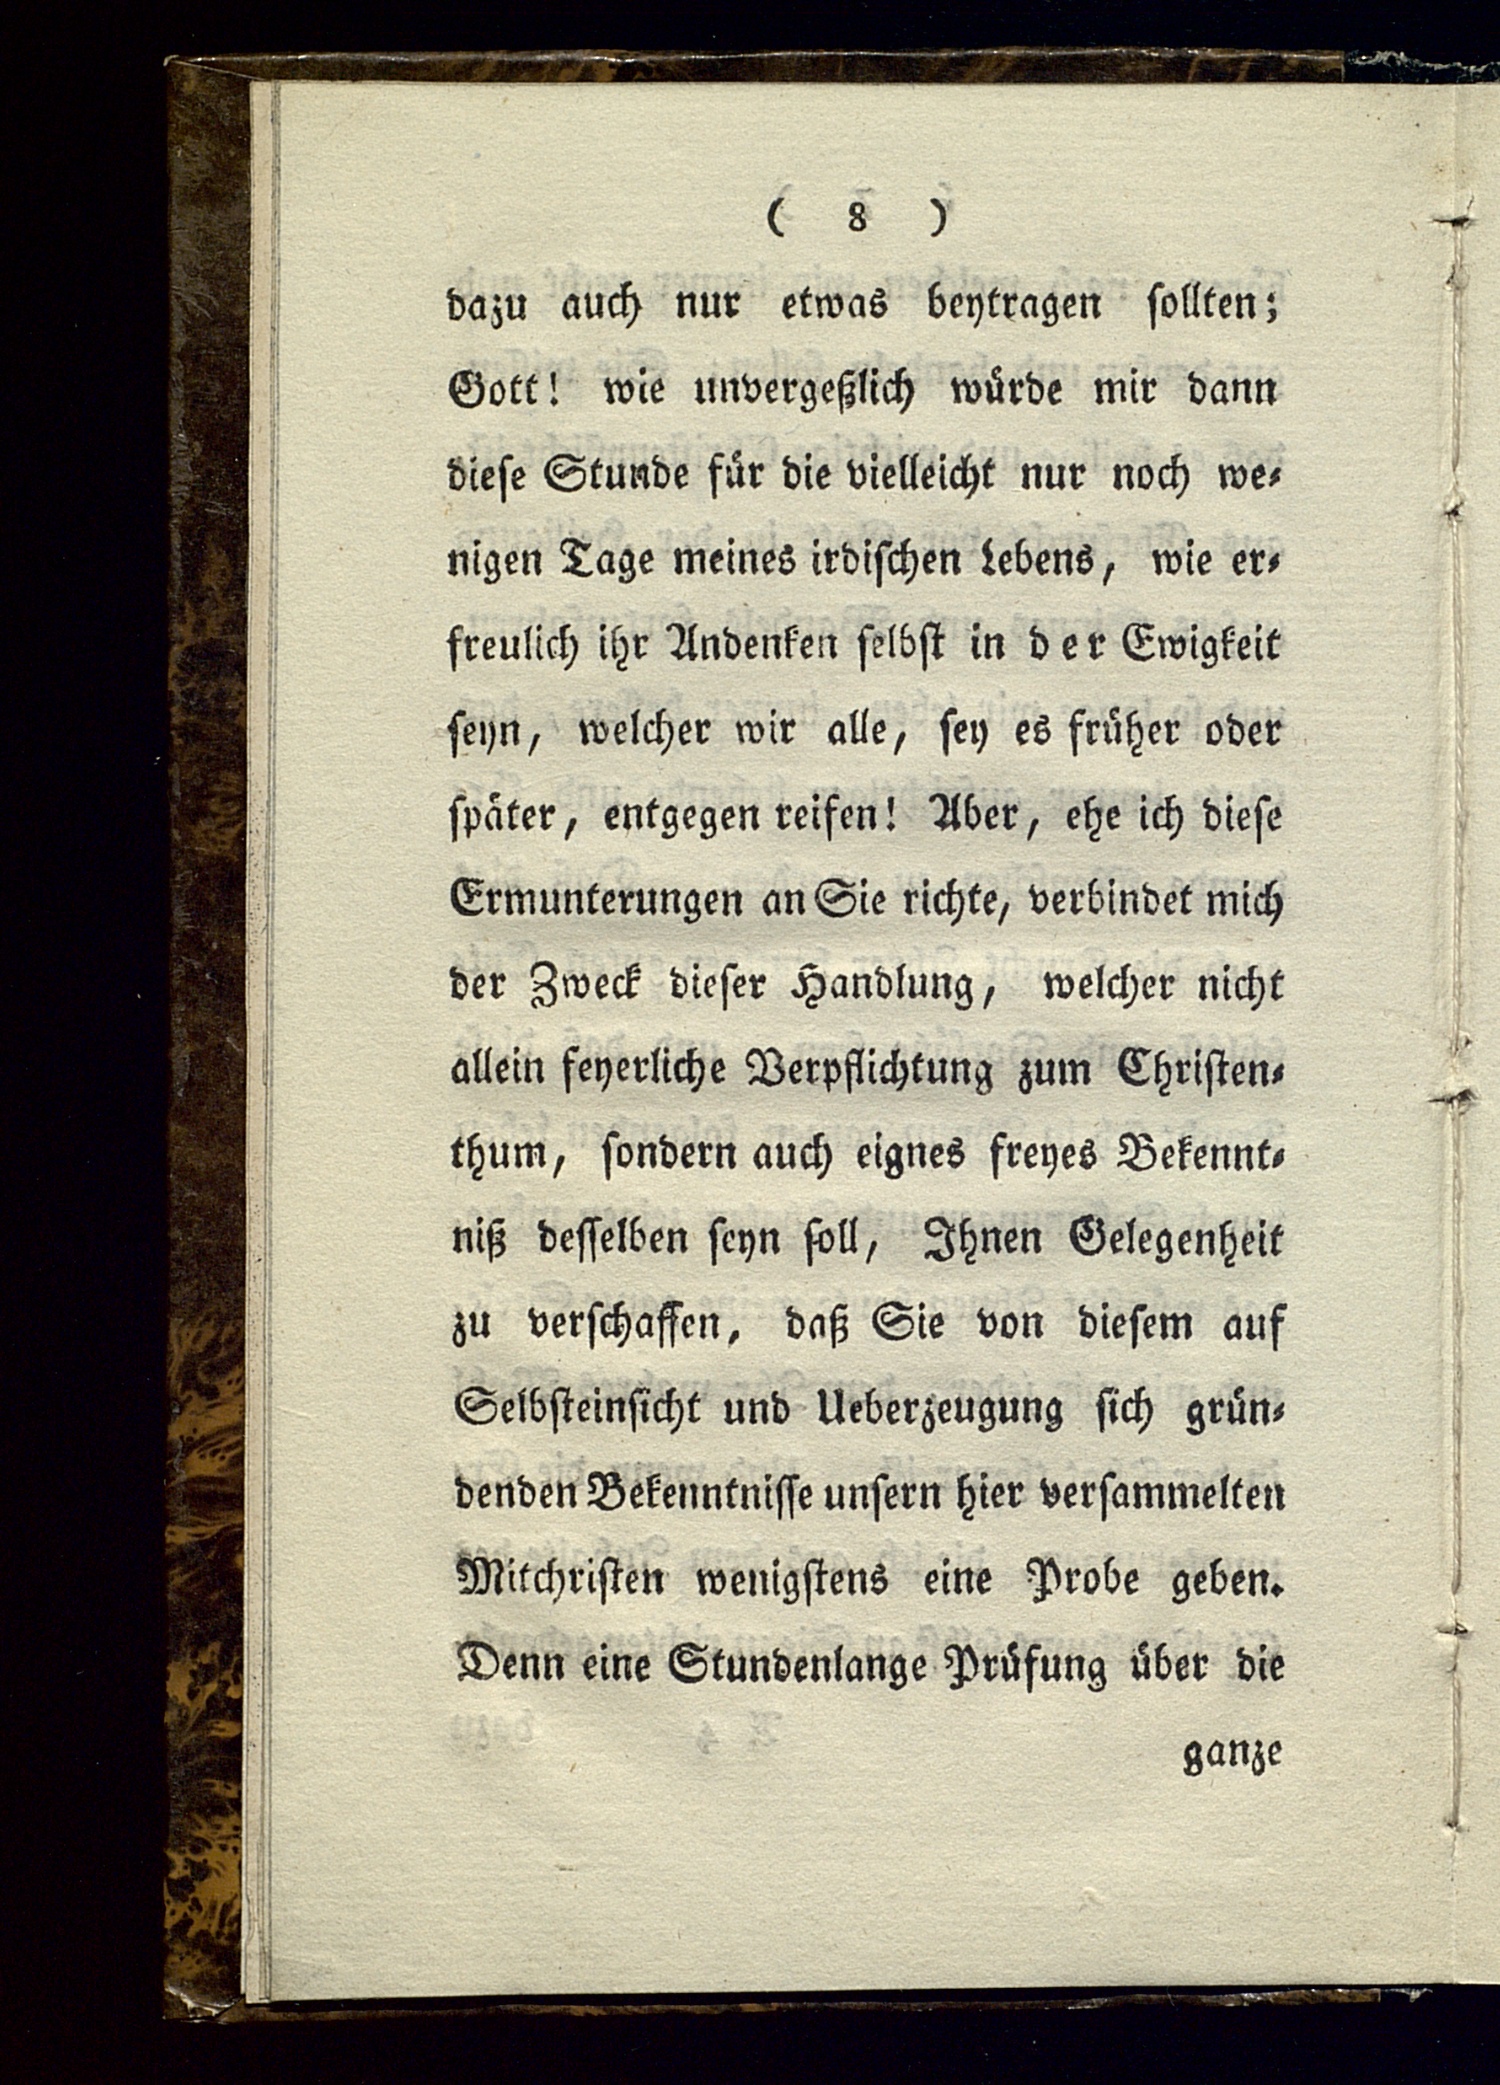 ( 8 )
dazu auch nur etwas beytragen sollten;
Gott! wie unvergeßlich würde mir dann
diese Stunde für die vielleicht nur noch we-
nigen Tage meines irdischen Lebens, wie er-
freulich ihr Andenken selbst in der Ewigkeit
seyn, welcher wir alle, sey es früher oder
später, entgegen reifen! Aber, ehe ich diese
Ermunterungen an Sie richte, verbindet mich
der Zweck dieser Handlung, welcher nicht
allein feyerliche Verpflichtung zum Christen-
thum, sondern auch eignes freyes Bekennt-
niß desselben seyn soll, Ihnen Gelegenheit
zu verschaffen, daß Sie von diesem auf
Selbsteinsicht und Ueberzeugung sich grün-
denden Bekenntnisse unsern hier versammelten
Mitchristen wenigstens eine Probe geben.
Denn eine Stundenlange Prüfung über die
ganze